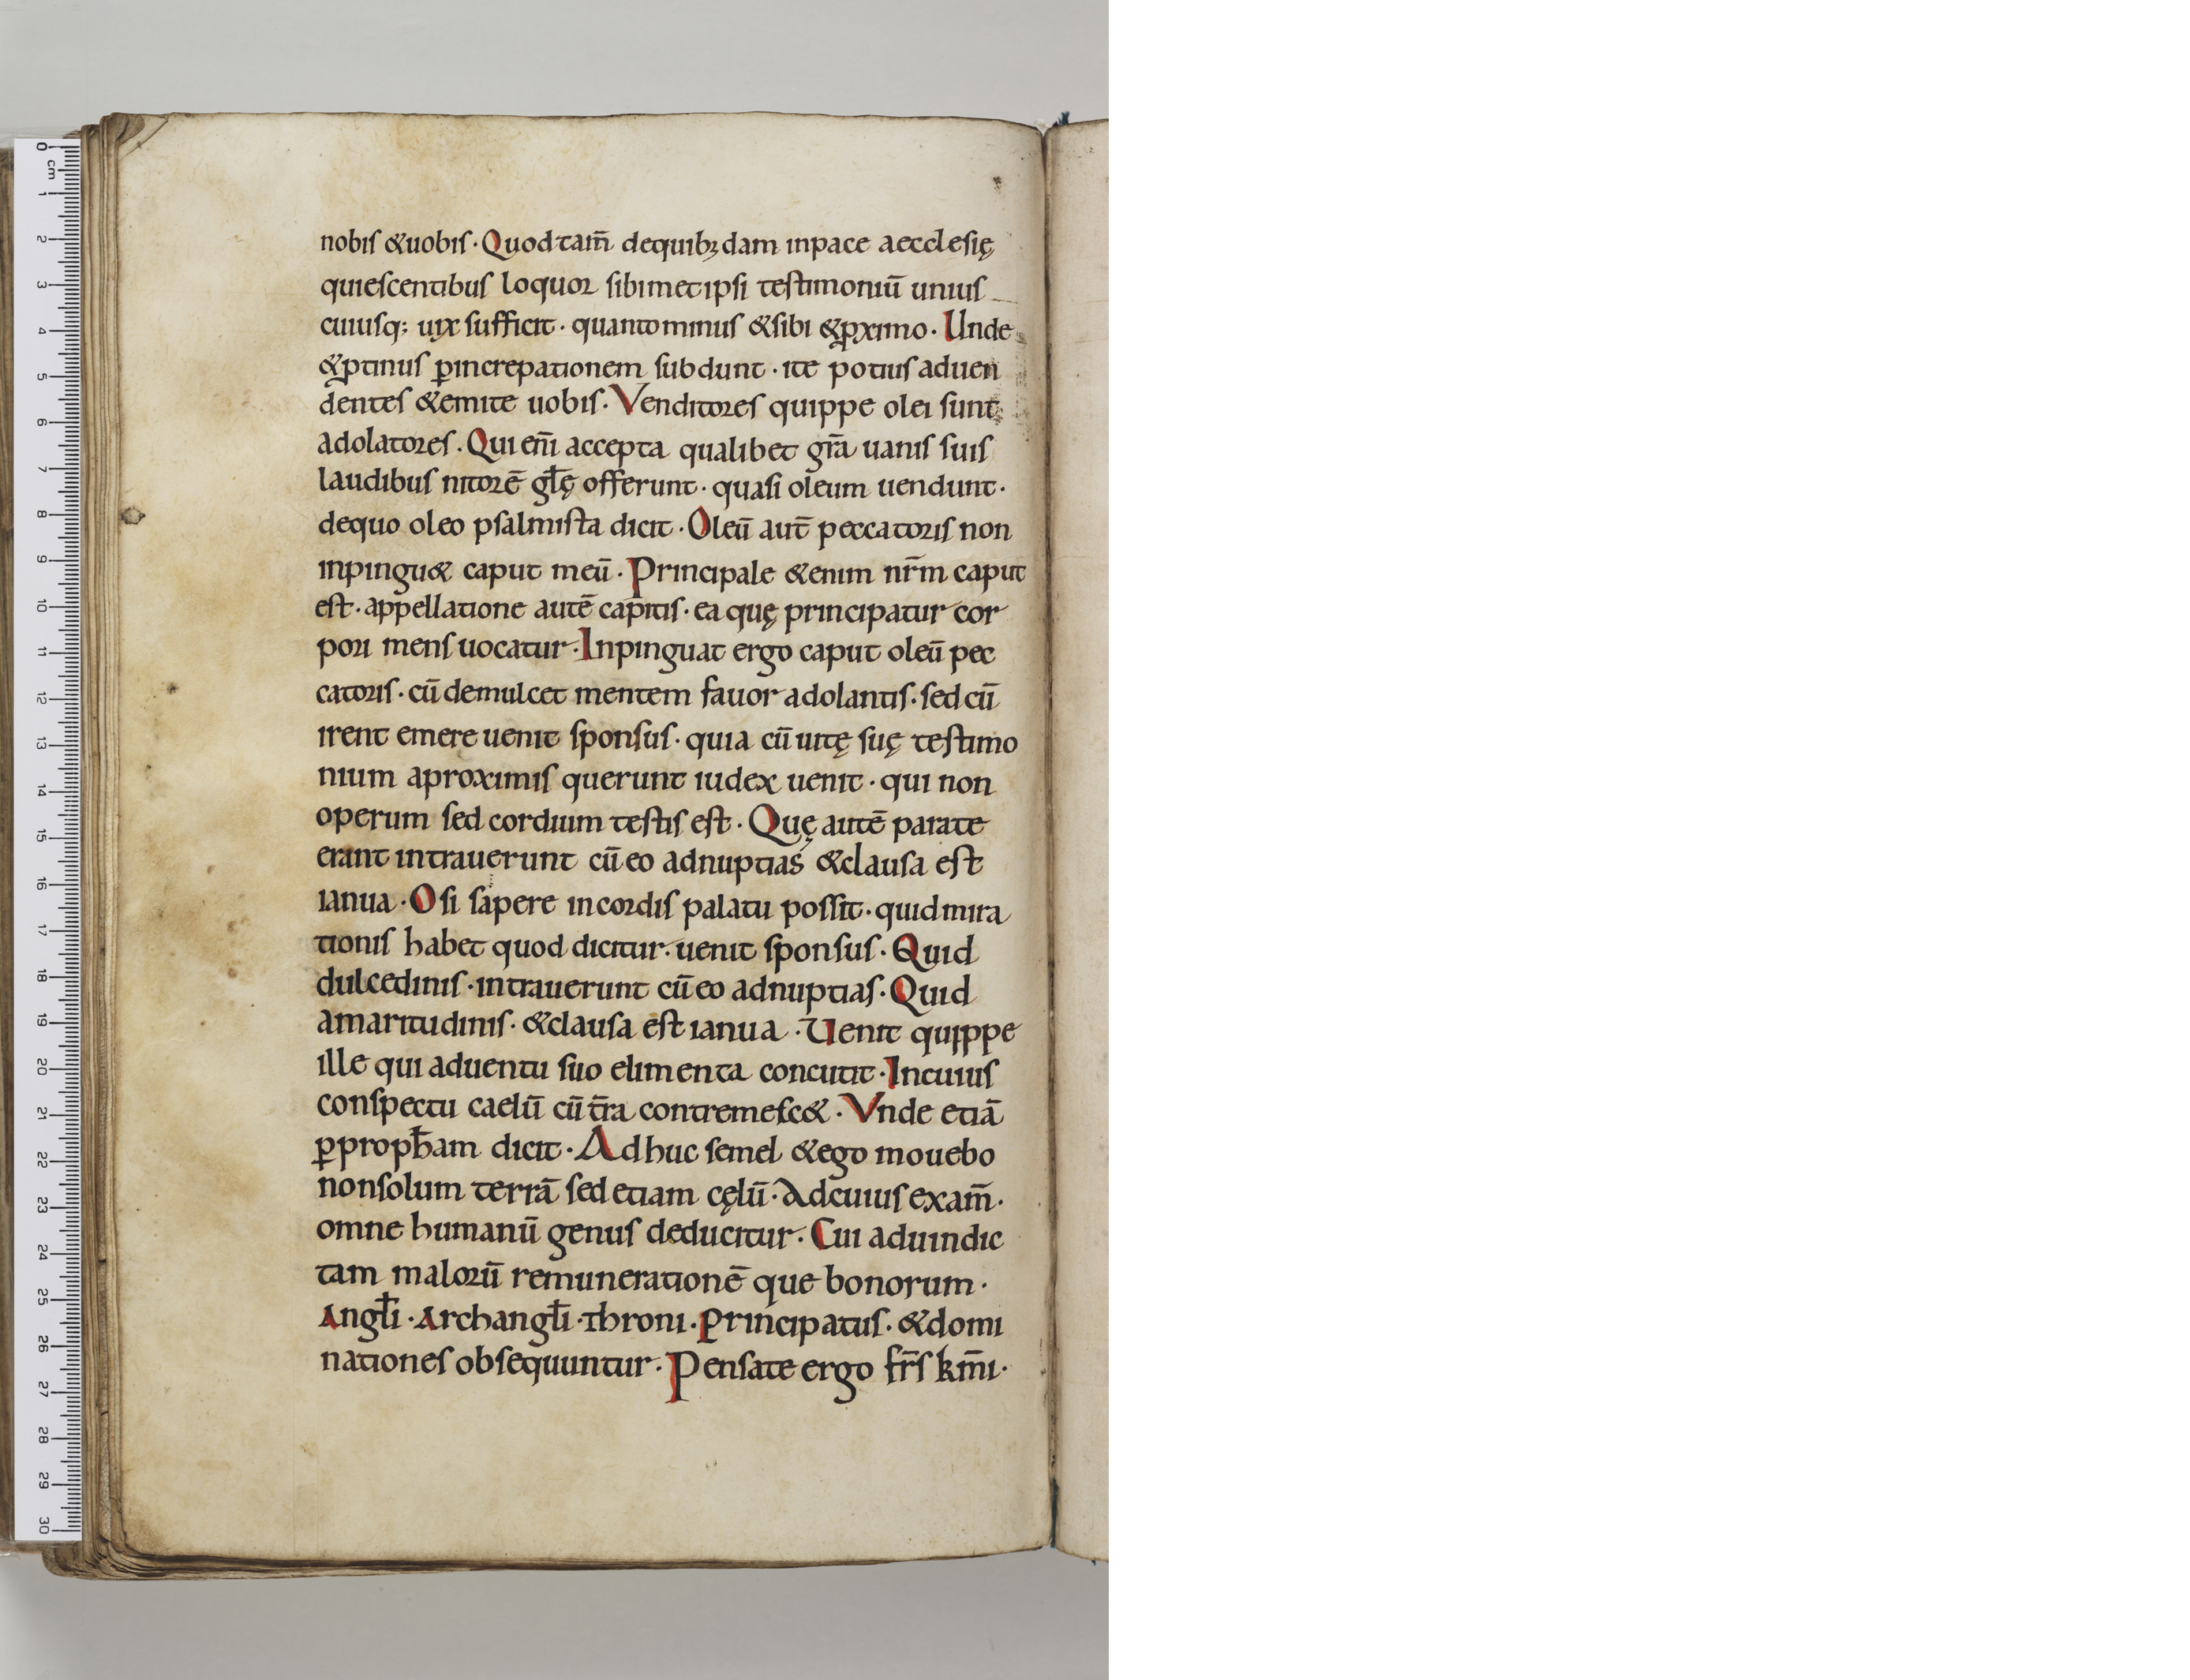 nobis &uobis · Quod tam̄ dequibꝫdam inpace aecclesię
quiescentibus loquor sibimetipsi testimoniū unius
cuiusq; uix sufficit · quanto minus &sibi &ꝓximo · Unde
&ꝓtinus ꝑincrepationem subdunt · ite potius aduen
dentes &emite uobis · Venditores quippe olei sunt
adolatores · Qui eni̅ accepta qualibet gr̄a uanis suis
laudibus nitorē gl̄ę offerunt · quasi oleum uendunt ·
dequo oleo psalmista dicit · Oleū aut̄ peccatoris non
inpingu& caput meū · Principale &enim nr̄m caput
est · appellatione autē capitis · ea quę principatur cor
pori mens uocatur · Inpinguat ergo caput oleū pec
catoris · cū demulcet mentem fauor adolantis · sed cū
irent emere uenit sponsus · quia cū uitę suę testimo
nium aproximis querunt iudex uenit · qui non
operum sed cordium testis est · Quę autē parate
erant intrauerunt cū eo adnuptias &clausa est
ianua · O si sapere in cordis palatu possit · quid mira
tionis habet quod dicitur · uenit sponsus · Quid
dulcedinis · intrauerunt cū eo adnuptias · Quid
amaritudinis · &clausa est ianua · Uenit quippe
ille qui aduentu suo elimenta concutit · Incuius
conspectu caelū cū t̄ra contremesc& · Vnde etiā
ꝑproph̄am dicit · Adhuc semel &ego mouebo
nonsolum terrā sed etiam cęlū · Adcuius exam̄ ·
omne humanū genus deducitur · Cui aduindic
tam malorū remunerationē que bonorum ·
Angl̄i · Archangl̄i · Throni · Principatus · &domi
nationes obsequuntur · Pensate ergo fr̄s km̄i ·
0 cm 1 2 3 4 5 6 7 8 9 10 11 12 13 14 15 16 17 18 19 20 21 22 23 24 25 26 27 28 29 30